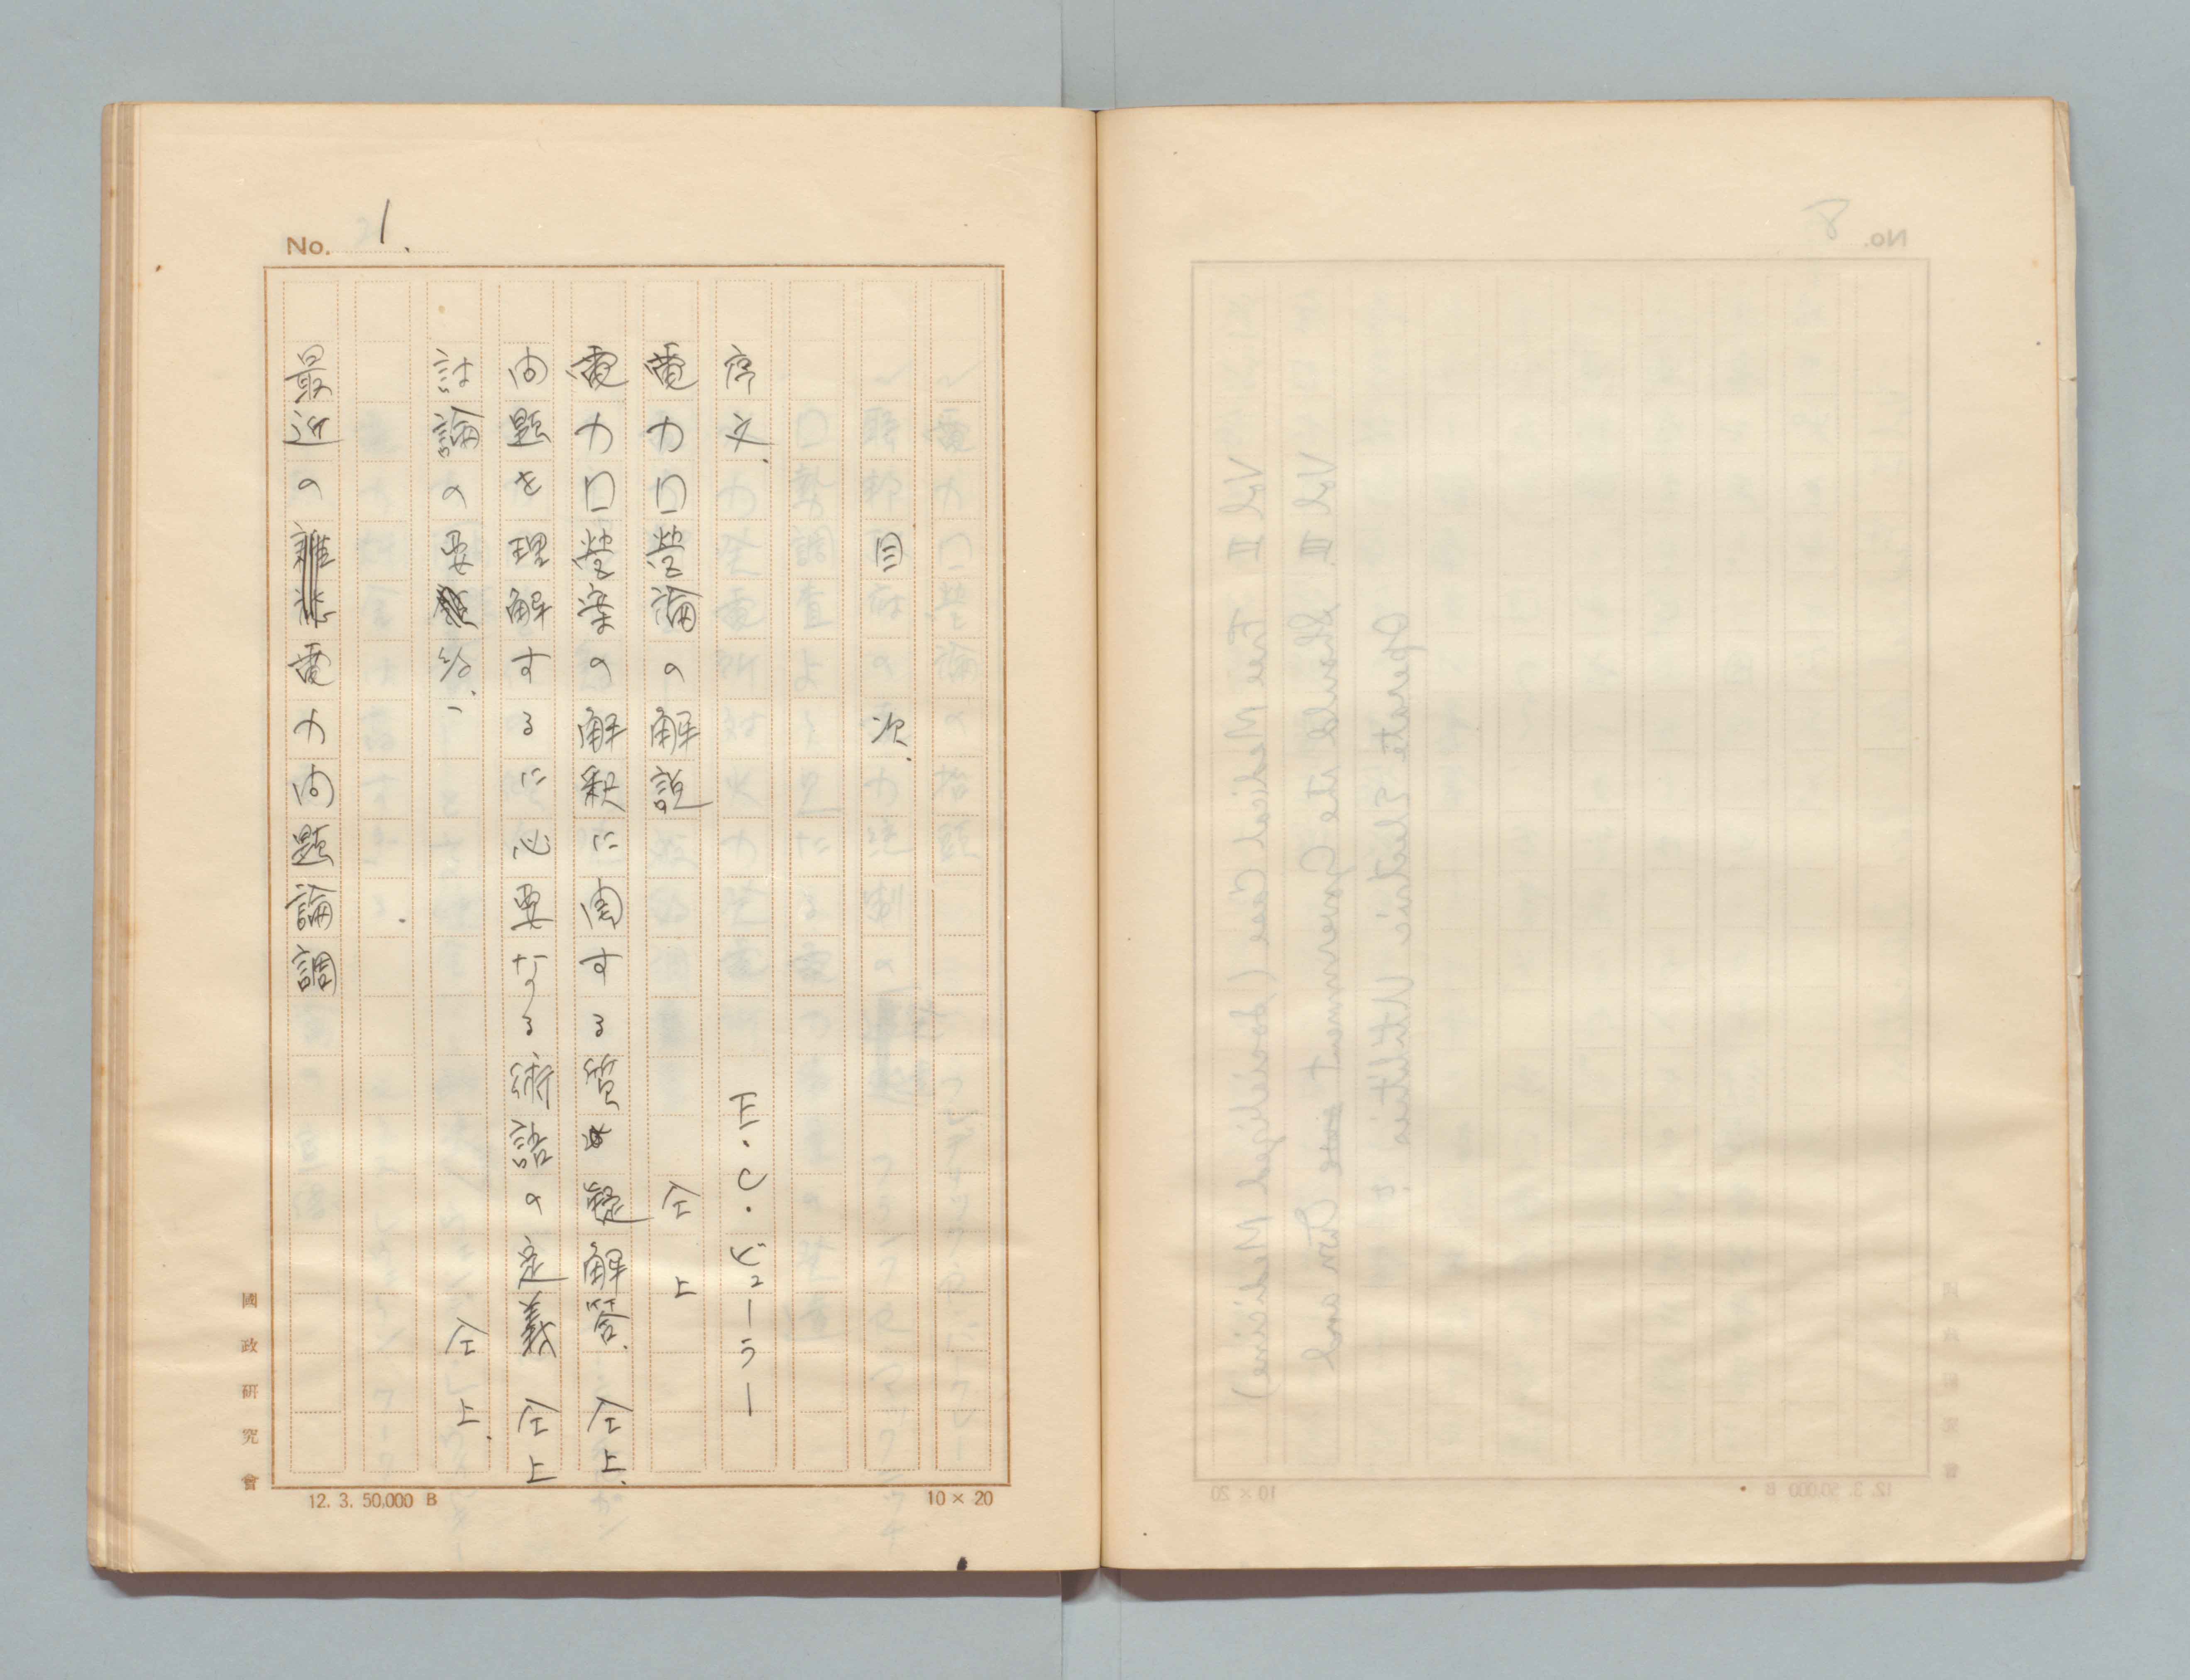 No. 1.
目次.
序文. E・C・ビューラー
電力国営論の解説 仝上
電力国営案の解釈に関する質疑解答. 仝上.
問題を理解するに必要なる術語の定義 仝上
討論の要 仝上.
最近の電力問題論調
國政研究會
12. 3. 50,000 B
10×20